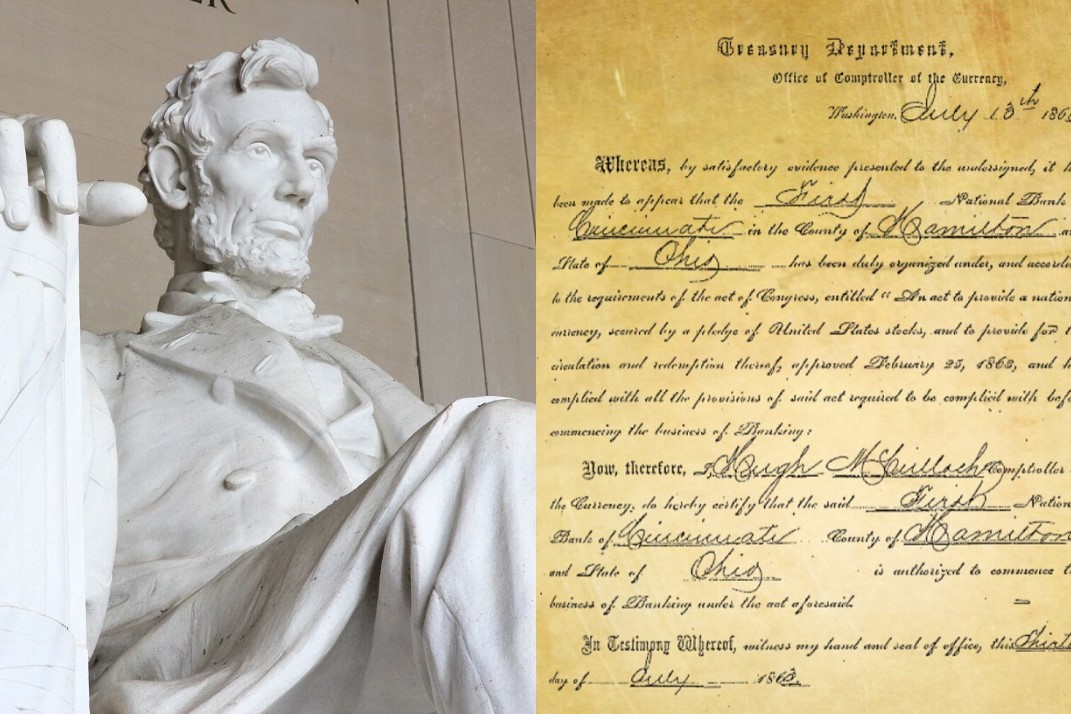 Treasury Department,
Office of Comptroller of the Currency,
Washington, July 13th 186
Whereas, by satisfactory evidence presented to the undersigned, it h
been made to appear that the First National Bank
Cincinnati in the County of Hamilton a
State of Ohio has been duly organized under, and accordi
to the requirements of the act of Congress, entitled "An act to provide a nation
currency, secured by a pledge of United States stocks, and to provide for t
circulation and redemption thereof, approved February 25, 1863, and h
complied with all the provisions of said act required to be complied with bef
commencing the business of Banking:
Now, therefore, I Hugh McCulloch Comptroller
the Currency, do hereby certify that the said First Nation
Bank of Cincinnati County of Hamilton
and State of Ohio is authorized to commence t
business of Banking under the act aforesaid.
In Testimony Whereof, witness my hand and seal of office, this Thirt
day of July 1863.